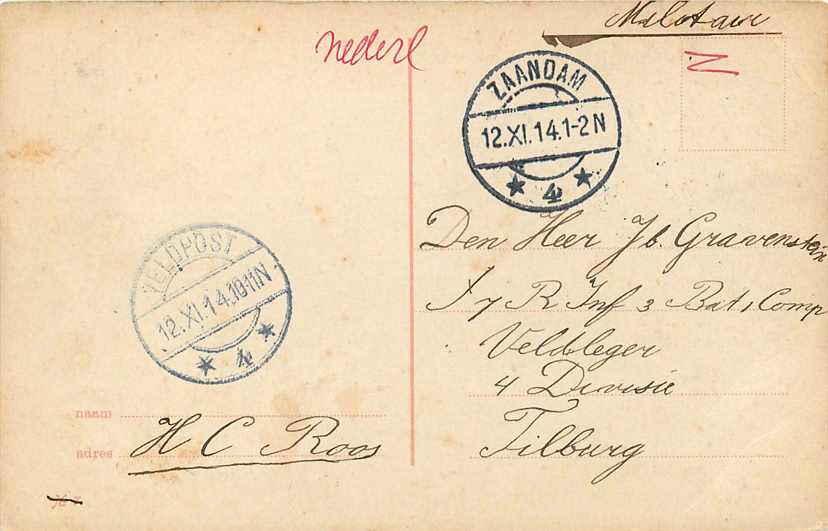 Militair
nederl
N
ZAANDAM
12.XI.14.1-2N
4
VELDPOST
12.XI.14.10-11N
4
Den Heer Jb. Gravenstein
1 7 R Inf 3 Bat 1 Comp
Veldleger
4 Divisie
Tilburg
naam
adres H C Roos